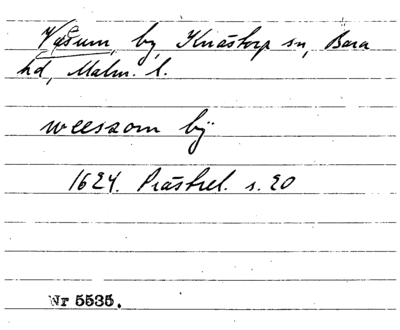 Våsum, by, Knästorp sn, Bara
hd, Malm. l.
weessom bÿ
1624. Prästrel. s. 20
Nr 5535.